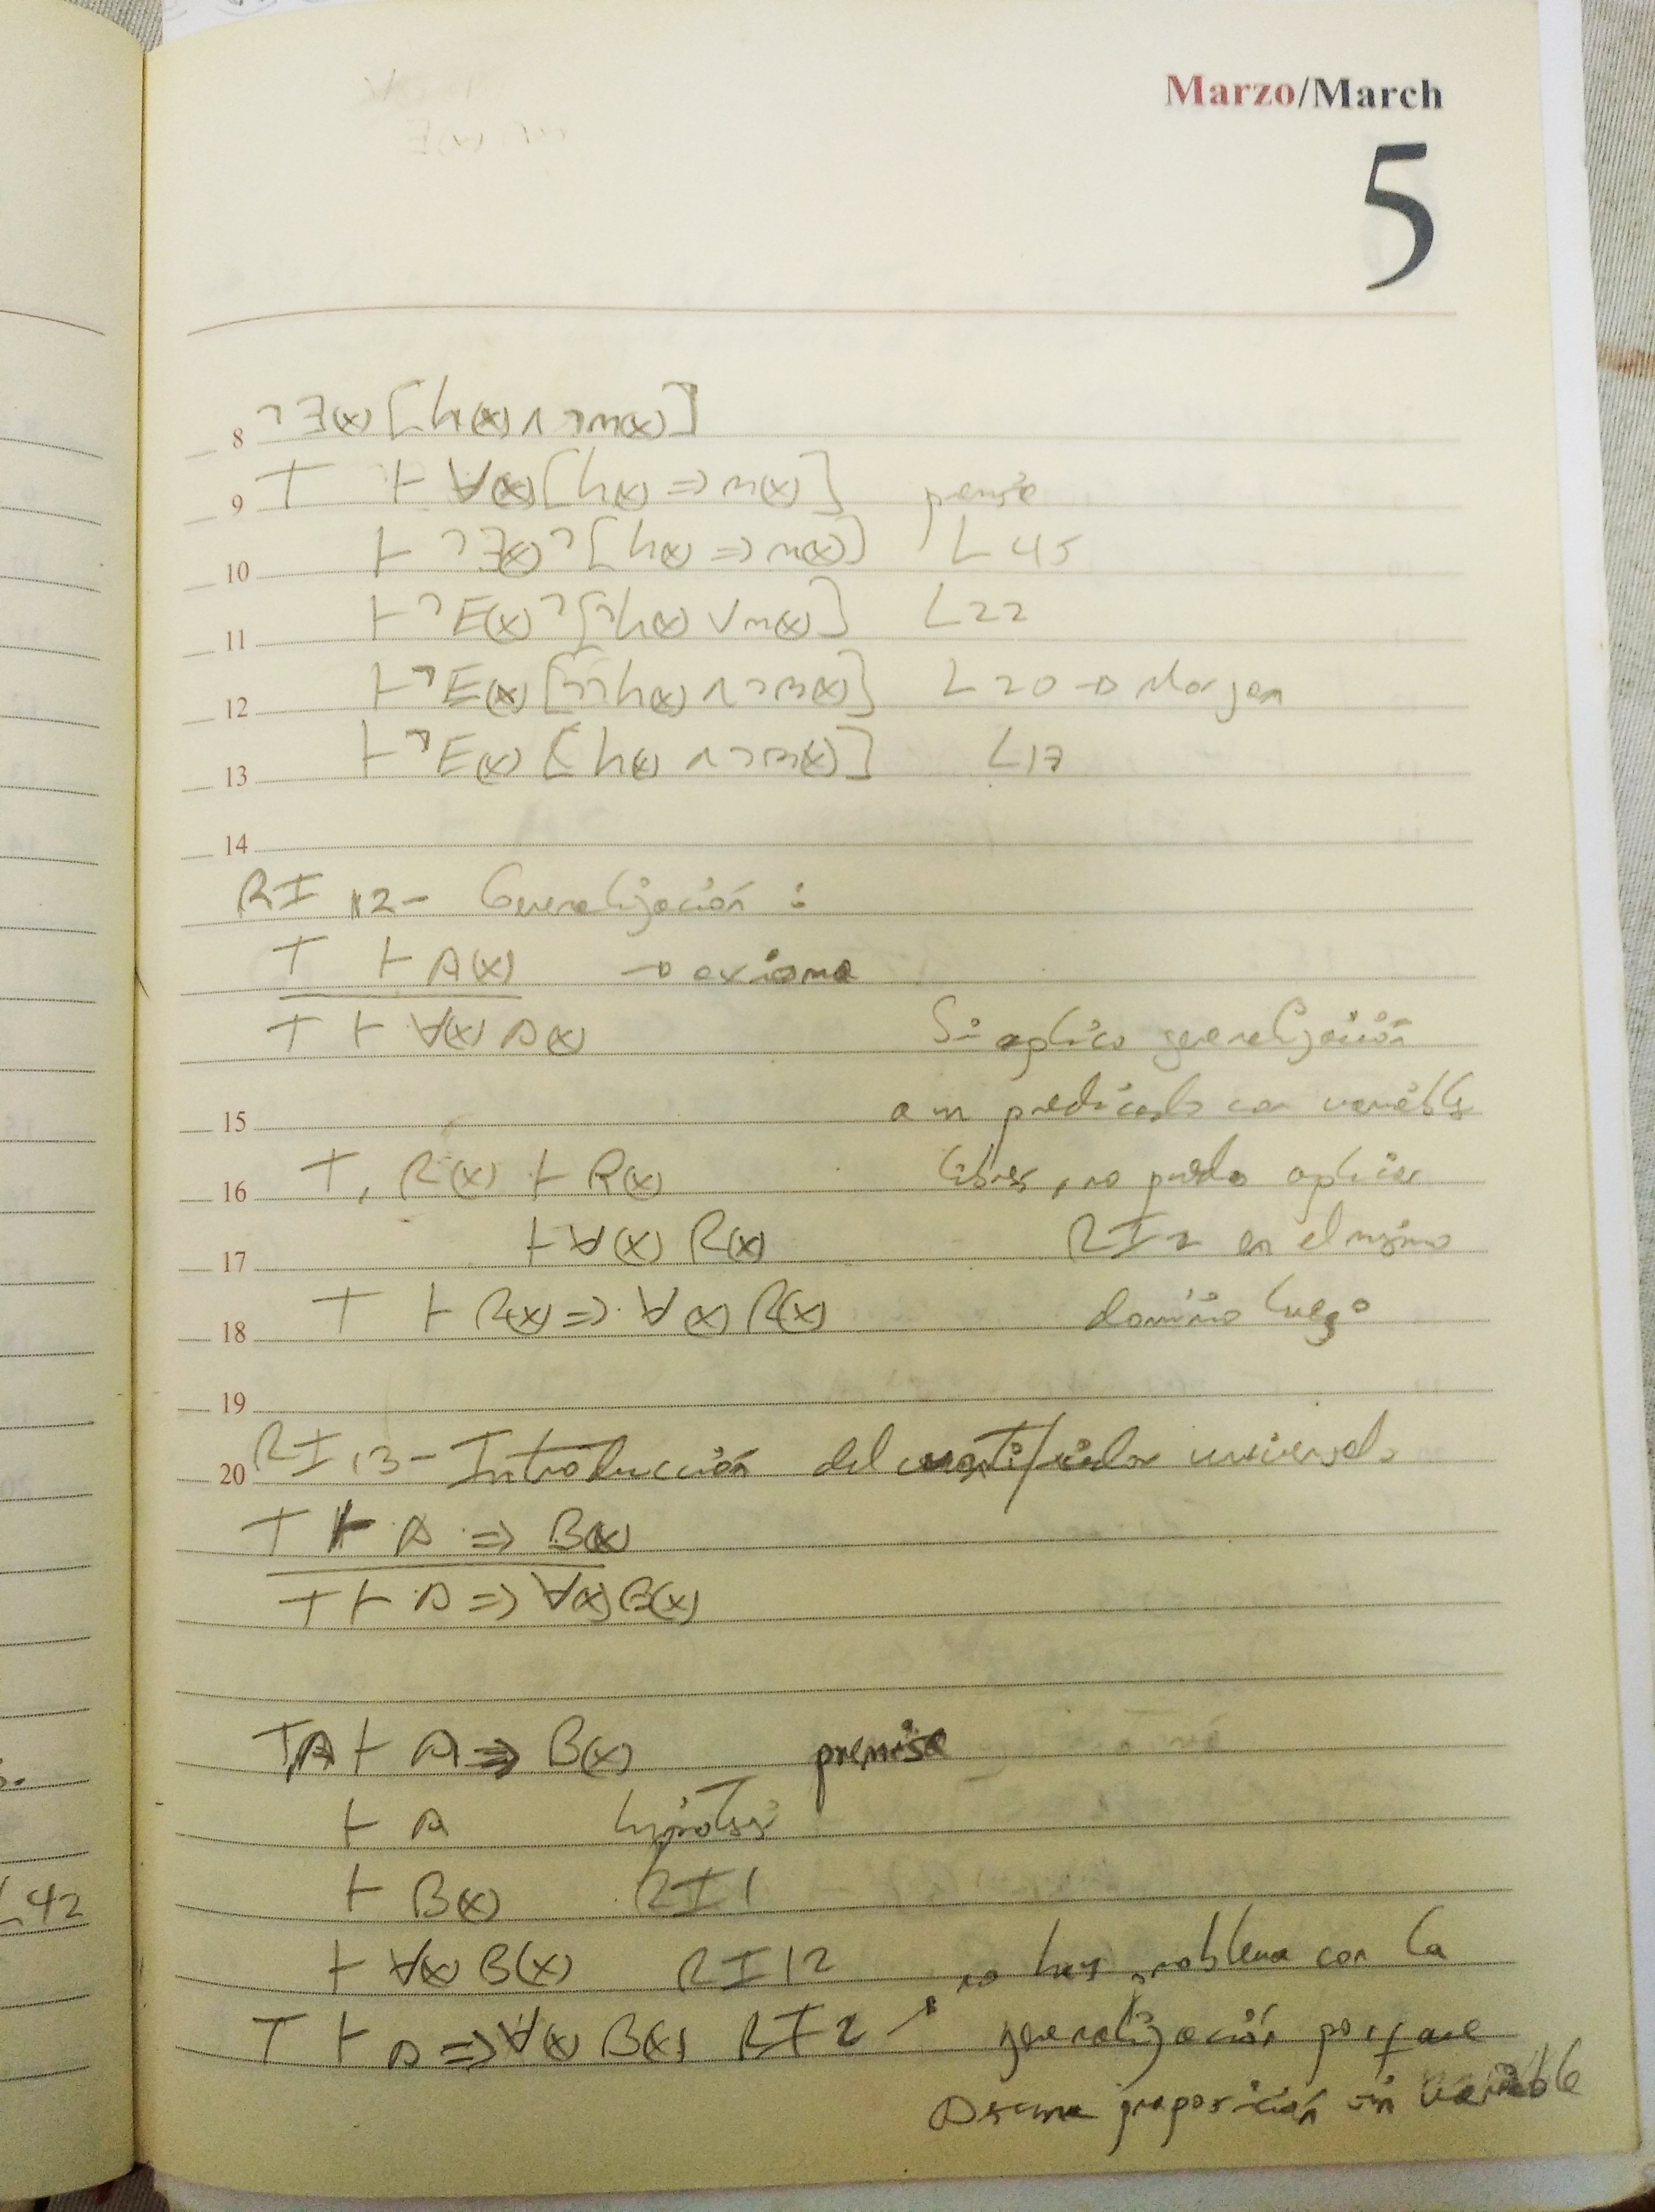 Marzo/March
5
8 ¬∃(x)[h(x)∧¬m(x)]
9 T ⊢ ∀(x)[h(x)⇒m(x)] premisa
10 ⊢ ¬∃(x)¬[h(x)⇒m(x)] L45
11 ⊢ ¬E(x)¬[¬h(x)∨m(x)] L22
12 ⊢ ¬E(x)[¬¬h(x)∧¬m(x)] L20 → Morgan
13 ⊢ ¬E(x)[h(x)∧¬m(x)] L17
14
RI 12- Generalización :
T ⊢ A(x) → axioma
T ⊢ ∀(x) A(x) Si aplico generalización
15 a un predicado con variable
16 T, R(x) ⊢ R(x) libres, no puedo aplicar
17 ⊢ ∀(x) R(x) RI2 en el mismo
18 T ⊢ R(x) ⇒ ∀(x) R(x) dominio luego
19
20 RI 13- Introducción del cuantificador universal
T ⊢ A ⇒ B(x)
T ⊢ A ⇒ ∀(x) B(x)
T,A ⊢ A ⇒ B(x) premisa
⊢ A hipótesis
⊢ B(x) RI1
⊢ ∀(x) B(x) RI12 no hay problema con la
T ⊢ A ⇒ ∀(x) B(x) RI2 generalización porque
A es una proposición sin variable
42